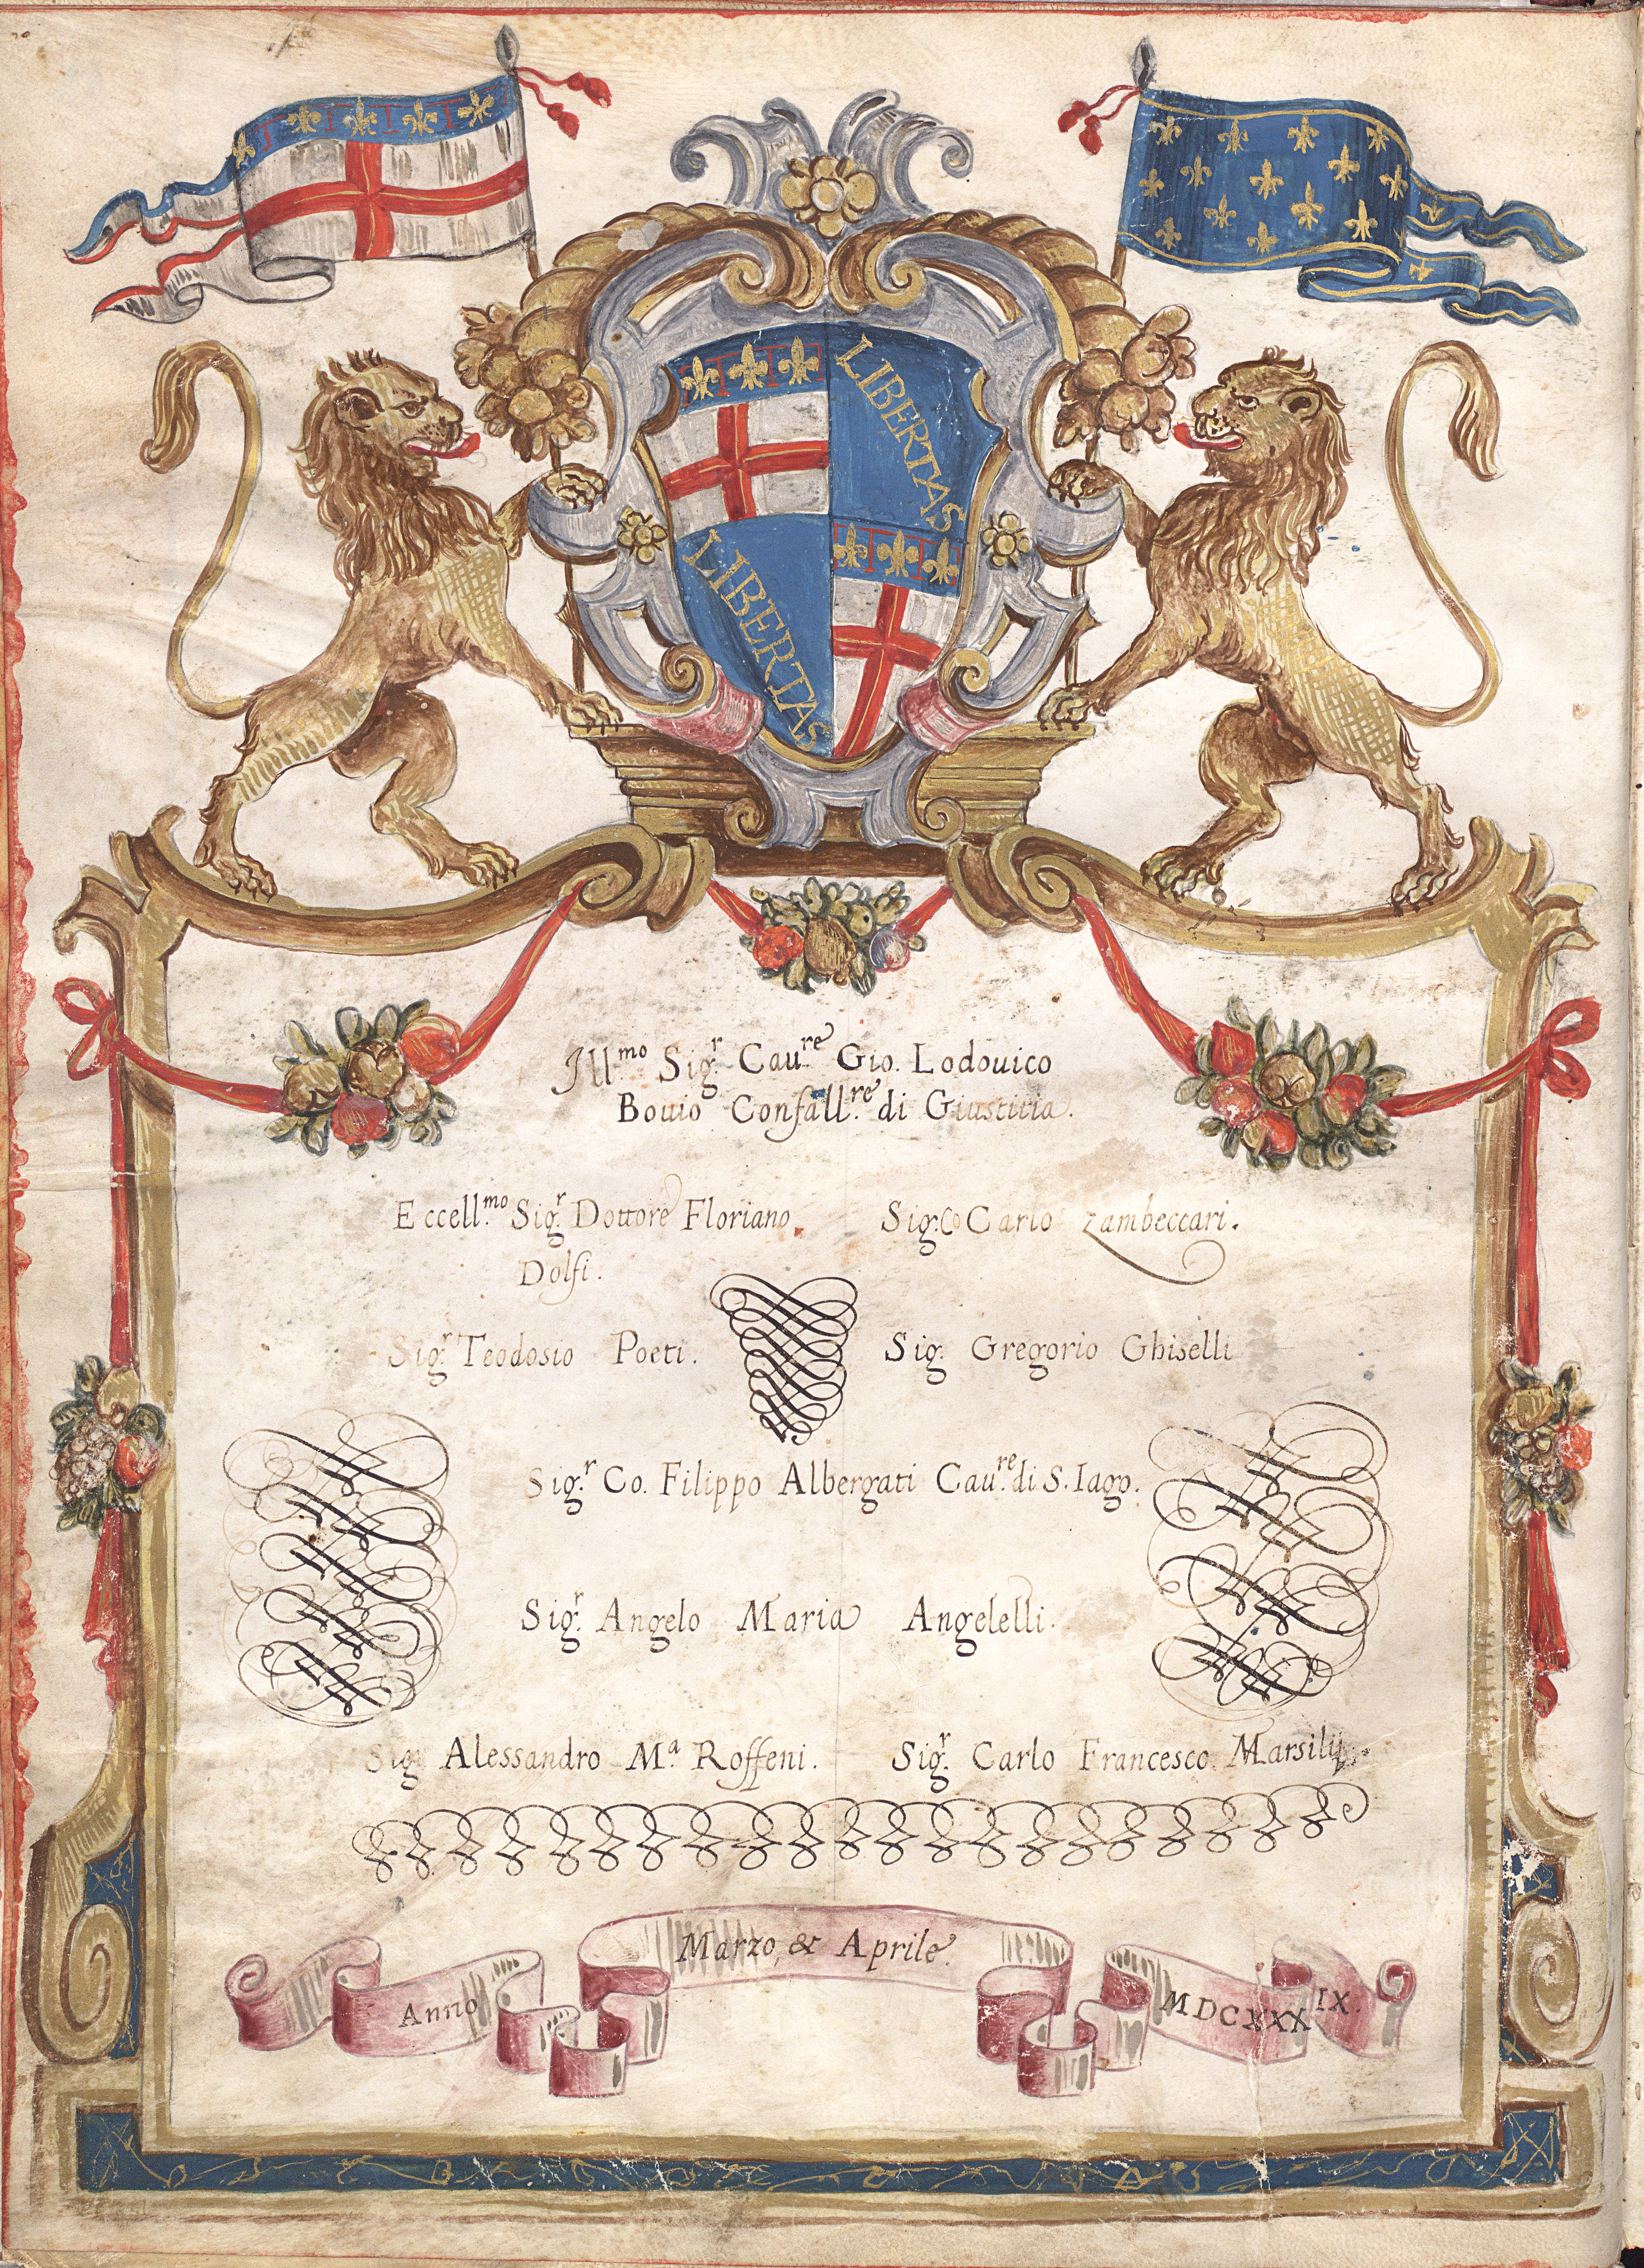 LIBERTAS
LIBERTAS
Ill.mo Sig.r Cau.re Gio. Lodouico
Bouio Confall.re di Giustitia.
Eccell.mo Sig.r Dottore Floriano
Dolfi.
Sig. Co Carlo Zambeccari.
Sig.r Teodosio Poeti.
Sig. Gregorio Ghiselli
Sig.r Co. Filippo Albergati Cau.re di S. Iago.
Sig.r Angelo Maria Angelelli.
Sig. Alessandro M.a Roffeni.
Sig.r Carlo Francesco Marsilij
Marzo, & Aprile.
Anno
MDCXXXIX.